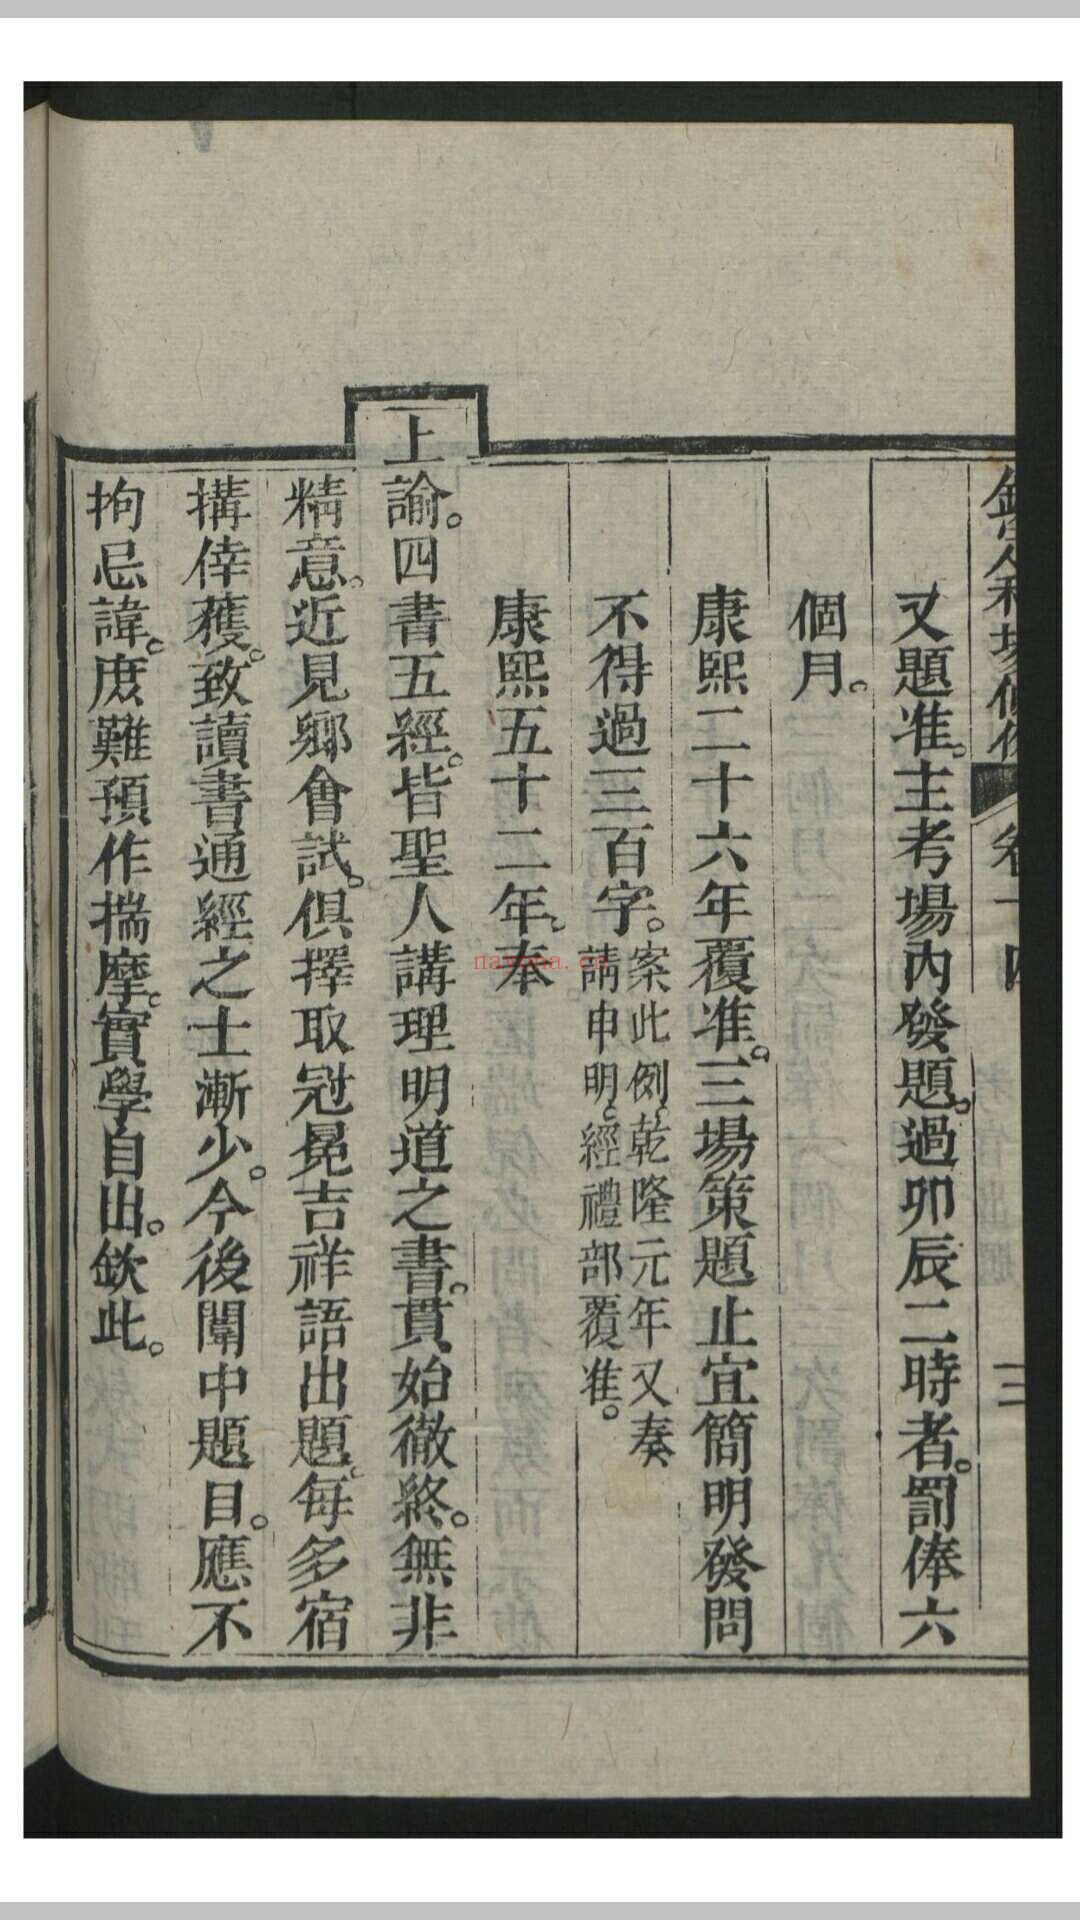 欽定科場條例 卷十四 三
又題准。主考場內發題。過卯辰二時者。罰俸六
個月。
康熙二十六年覆准。三場策題止宜簡明發問
不得過三百字。案此例乾隆元年又奏
請申明經禮部覆准。
康熙五十二年。奉
上諭。四書五經。皆聖人講理明道之書。貫始徹終。無非
精意。近見鄉會試。俱擇取冠冕吉祥語出題。每多宿
搆倖獲。致讀書通經之士漸少。今後闈中題目。應不
拘忌諱。庶難預作揣摩。實學自出。欽此。
nayona.cn